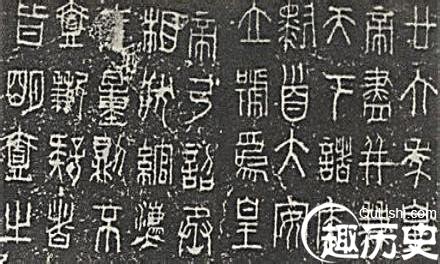 廿六年皇
帝盡并兼
天下諸矦
黔首大安
立號爲皇
帝乃詔丞
相狀綰灋
度量則不
壹歉疑者
皆明壹之
Qulishi.com
趣历史